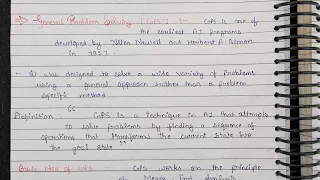 General Problem Solving (GPS) :- GPS is one of
the earliest AI programs
developed by Allen Newell and Herbert A. Simon
in 1957.
- It was designed to solve a wide variety of problems
using a general approach rather than a problem
specific method
Definition GPS is a technique in AI that attempts
to solve problems by finding a sequence of
operations that transforms the current state into
the goal state"
Basic Idea of GPS. GPS works on the principle
of Means End Analysis